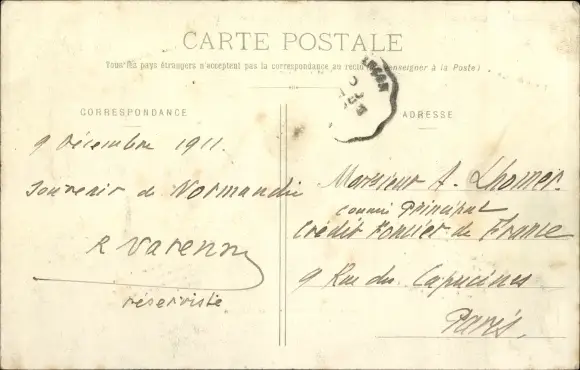 CARTE POSTALE
Tous les pays étrangers n'acceptent pas la correspondance au recto (se renseigner à la Poste)
CORRESPONDANCE
ADRESSE
9 décembre 1911.
Souvenir de Normandie
R Varenne
réserviste
Monsieur A. Lhomer
commis Principal
Crédit Foncier de France
9 Rue des Capucines
Paris.